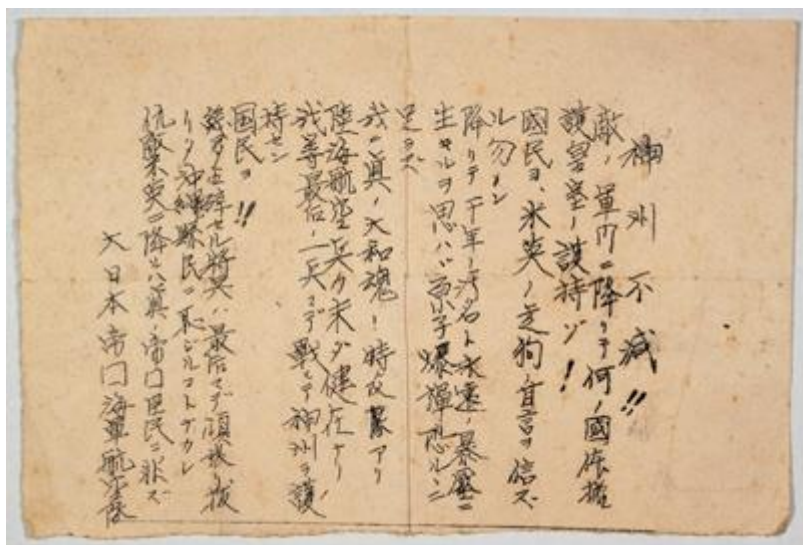 神州不滅!!
敵ノ軍門ニ降リテ何ノ國体擁
護皇室ノ護持ゾ!
國民ヨ、米英ノ走狗ノ盲言ヲ信ズ
ル勿レ
降リテ千年ノ汚名ト永遠ノ暴塁ニ
生キルヲ思ハバ原子爆弾恐ルヽニ
足ラズ
我ニ真ノ大和魂ノ特攻隊アリ
陸海航空兵力未ダ健在ナリ
我等最后ノ一兵マデ戦ヒテ神州ヲ護
持セン
国民ヨ!!
玉砕セル将兵ハ最后マデ頑張リ抜
リタ沖縄縣民ニ恥ヂルコトナカレ
仇敵米英ニ降ルハ真ノ帝国臣民ニ非ズ
大日本帝国海軍航空隊